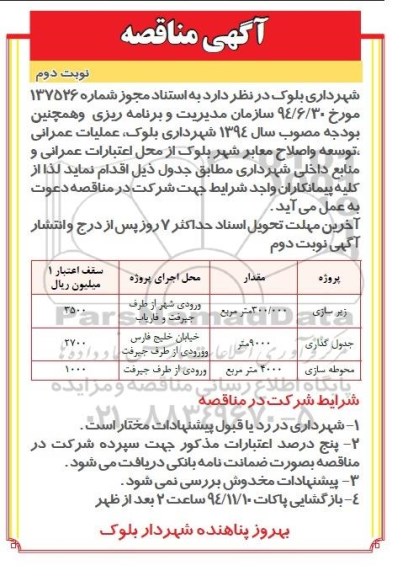 آگهی مناقصه
نوبت دوم
شهرداری بلوک در نظر دارد به استناد مجوز شماره ۱۳۷۵۲۶
مورخ ۹۴/۶/۳۰ سازمان مدیریت و برنامه ریزی وهمچنین
بودجه مصوب سال ۱۳۹۴ شهرداری بلوک، عملیات عمرانی
،توسعه واصلاح معابر شهر بلوک از محل اعتبارات عمرانی و
منابع داخلی شهرداری مطابق جدول ذیل اقدام نماید لذا از
کلیه پیمانکاران واجد شرایط جهت شرکت در مناقصه دعوت
به عمل می آید.
آخرین مهلت تحویل اسناد حداکثر ۷ روز پس از درج و انتشار
آگهی نوبت دوم
پروژه مقدار محل اجرای پروژه سقف اعتبار ۱ میلیون ریال
زیر سازی ۳۰۰/۰۰۰متر مربع ورودی شهر از طرف جیرفت و فاریاب ۳۵۰۰
جدول گذاری ۹۰۰۰متر خیابان خلیج فارس وورودی از طرف جیرفت ۲۷۰۰
محوطه سازی ۴۰۰۰ متر مربع ورودی از طرف جیرفت ۱۰۰۰
ParsNamadData
پایگاه اطلاع رسانی مناقصه و مزایده
۰۲۱-۸۸۳۴۹۶۷۰-۵
شرایط شرکت در مناقصه
۱- شهرداری در رد یا قبول پیشنهادات مختار است.
۲- پنج درصد اعتبارات مذکور جهت سپرده شرکت در
مناقصه بصورت ضمانت نامه بانکی دریافت می شود.
۳- پیشنهادات مخدوش بررسی نمی شود.
۴- بازگشایی پاکات ۹۴/۱۱/۱۰ ساعت ۲ بعد از ظهر
بهروز پناهنده شهردار بلوک